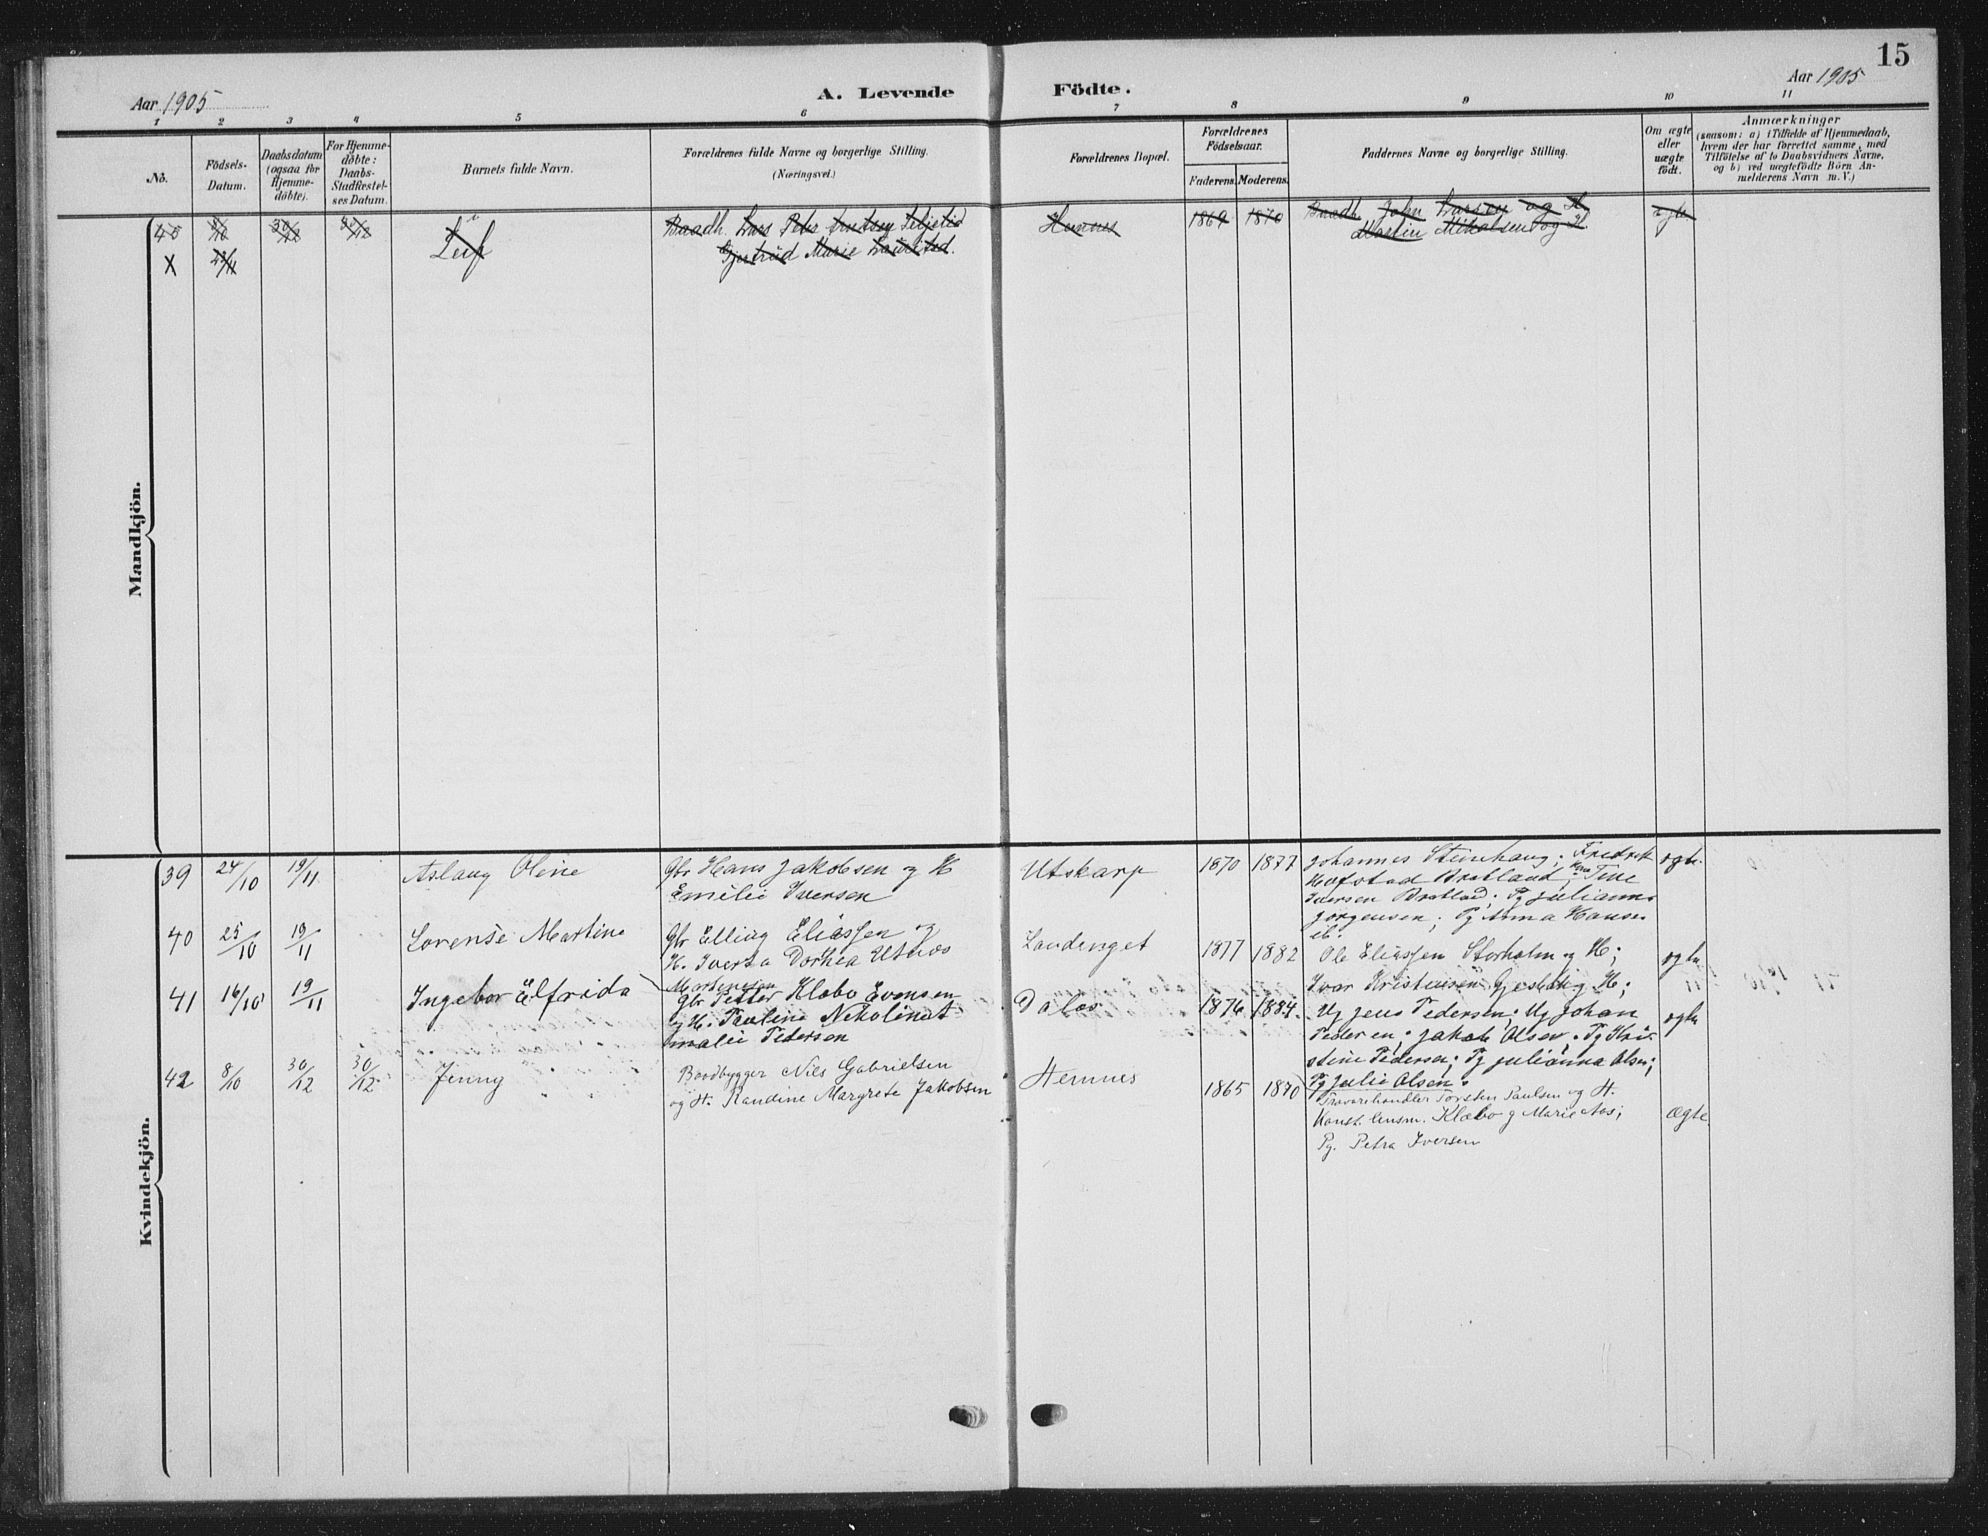 15
Aar 1905
A. Levende Födte.
Aar 1905
1 2 3 4 5 6 7 8 9 10 11
No.
Födsels-
Datum.
Daabsdatum
(ogsaa for
Hjemme-
döbte).
For Hjemme-
døbte:
Daabs-
Stadfæstel-
ses Datum.
Barnets fulde Navn.
Forældrenes fulde Navne og borgerlige Stilling.
(Næringsvei.)
Forældrenes Bopæl.
Forældrenes
Födselsaar.
Faderens. Moderens.
Faddernes Navne og borgerlige Stilling.
Om ægte
eller
uægte
födt.
Anmærkninger
(saasom: a) i Tilfælde af Hjemmedaab,
hvem der har forrettet samme, med
Tilföielse af to Daabsvidners Navne,
og b) ved uægtefödte Börn An-
melderens Navn m. V.)
Mandkjön.
Baadb. Lars
Hemnes 1869 1870
Baadb. John Larsen og H.
Martin Mikalsen og H.
ægte
X 23/11 Leif
Gjertrud Marie
Kvindekjön.
39 24/10 19/11 Aslaug Oline
Gbr Hans Jakobsen og H
Emelie Iversen
Utskarp 1870 1877
Johannes Steinhaug; Fredrik
Hofstad Bratland; Tine
Iversen Bratland; Pg Julianna
Jørgensen; Pg Anna Hansen
ib.
ægte
40 25/10 19/11 Lorense Martine
Gbr Elling Eliassen og
H. Iverta Dorthea Utnæs
Mortensen
Landenget 1877 1882
Ole Eliassen Storholm og H;
Ivar Kristensen og H;
ægte
41 16/10 19/11 Ingebor Elfrida
Gbr Petter Klæbo Evensen
og H. Pauline Nikoline
malie Pedersen
Dalos 1876 1884
Ug Jens Pedersen; Ug Johan
Pedersen; Jakob Olsen. Pg Kri-
stine Pedersen; Pg Julianna Olsen;
Pg Julie Olsen.
ægte
42 8/10 30/12 30/12 Jenny
Baadbygger Nils Gabrielsen
og H. Randine Margrete Jakobsen
Hemnes 1865 1870
Travarehandler Torsten Paulsen og H.
Konst. lensm. Klæbo g Marie Aas;
Pg. Petra Iversen
ægte